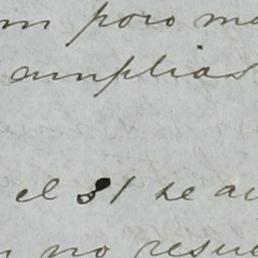 un poco ma
amplias
el 31 se au
no resue